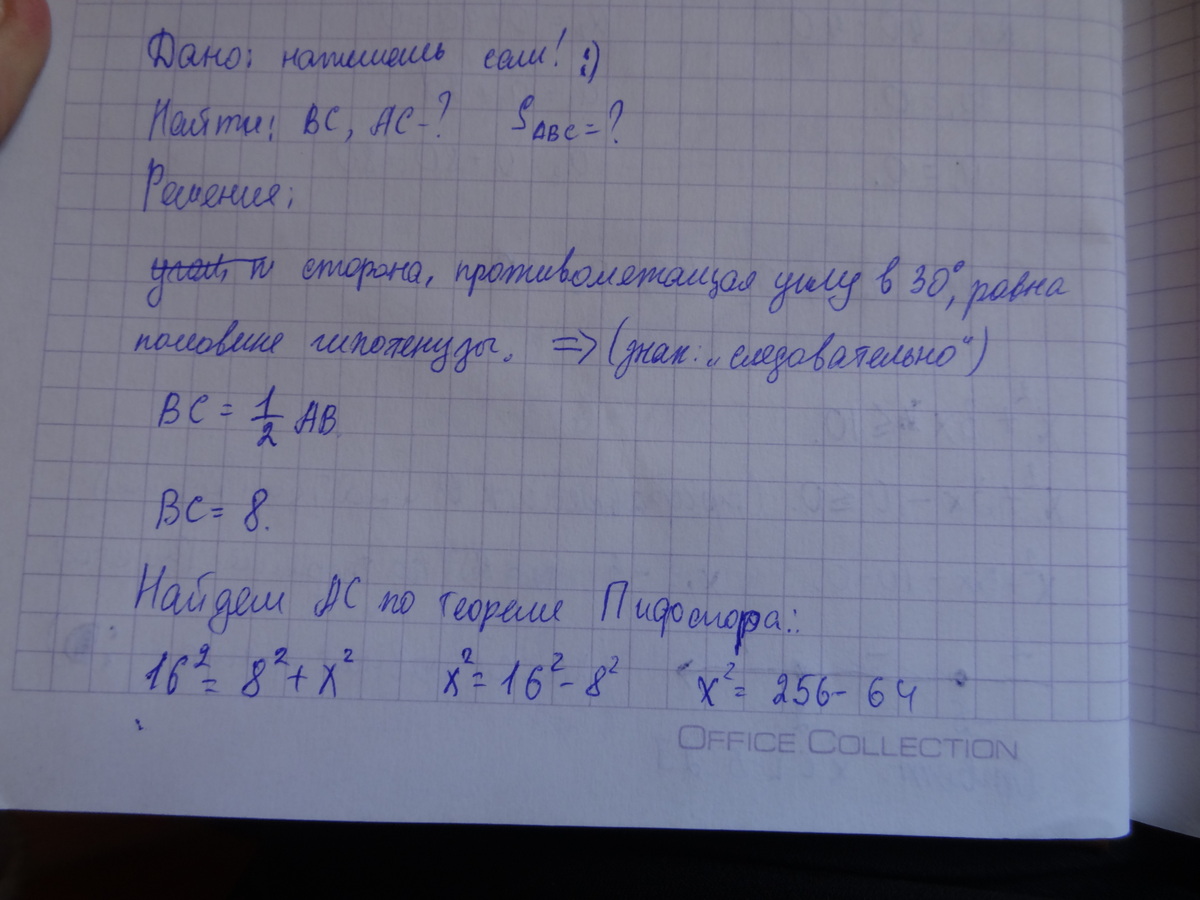 Дано: напишешь сам! :)
Найти: BC, AC-? S ABC = ?
Решение:
сторона, противолежащая углу в 30°, равна
половине гипотенузы. => (знак: „следовательно“)
BC = 1/2 AB
BC = 8.
Найдем AC по теореме Пифагора:
16² = 8² + x² x² = 16² - 8² x² = 256 - 64
OFFICE COLLECTION